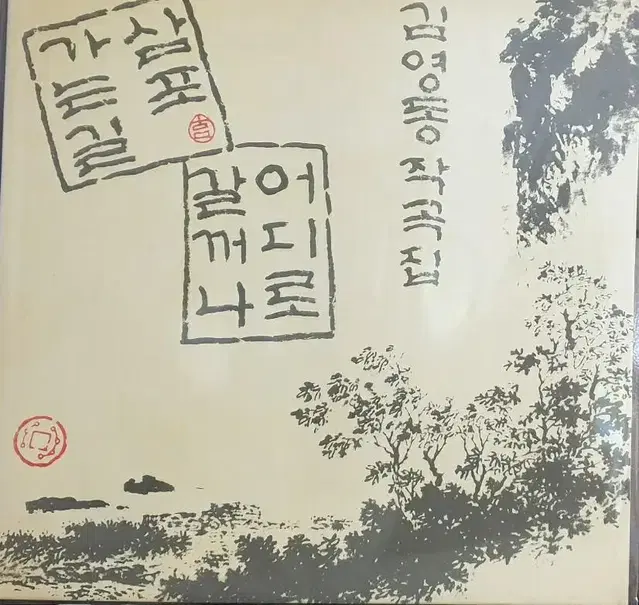 삼포
가는길
어디로
갈꺼나
김영동작곡집